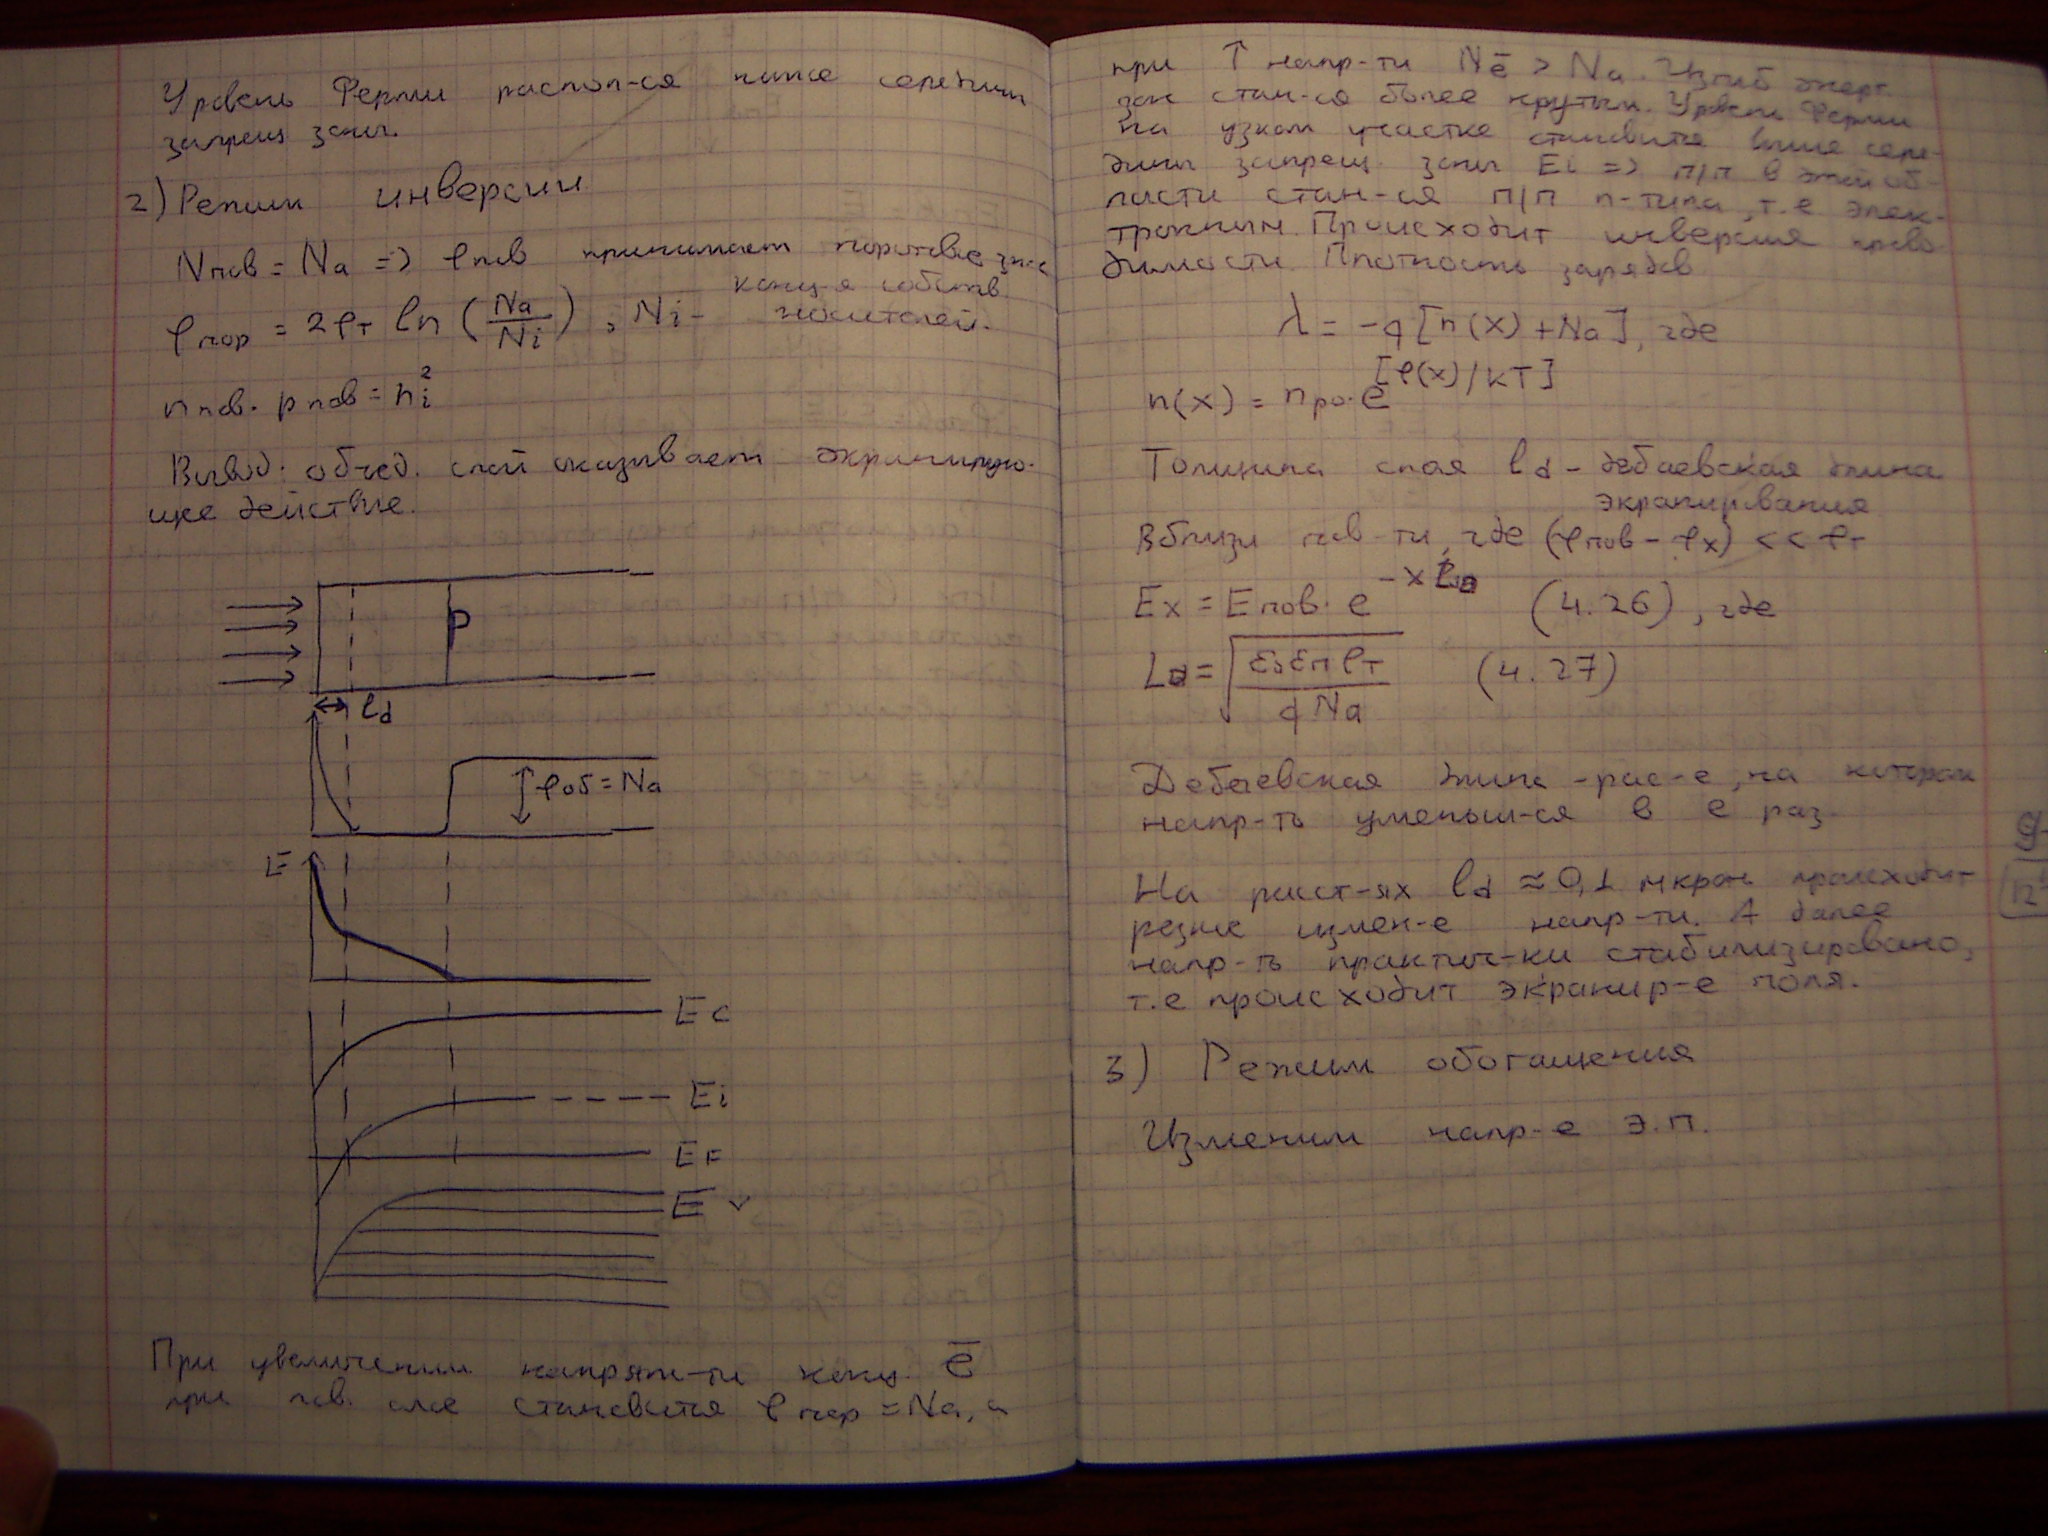 Уровень Ферми распол-ся ниже середины
запрещ зоны.
2) Режим инверсии
Nпов = Na => φпов принимает пороговое знач
φпор = 2φт ln (Na/Ni), Ni - конц-я собств.
носителей.
nпов. pпов = ni²
Вывод: обед. слой оказывает экранирую-
щее действие.
P
ld
φоб = Na
E
Ec
Ei
EF
Ev
При увеличении напряж-ти конц. ē
при пов. слое становится φпор = Na, а
при ↑ напр-ти Nē > Na. Изгиб энерг.
зон стан-ся более крутым. Уровень Ферми
на узком участке становится выше сере-
дины запрещ. зоны Ei => п/п в этой об-
ласти стан-ся п/п n-типа, т.е элек-
тронным. Происходит инверсия прово
димости. Плотность зарядов
λ = -q [n(x) + Na], где
n(x) = npo·e^[φ(x)/kT]
Толщина слоя ld - дебаевская длина
экранирования
Вблизи пов-ти, где (φпов - φx) << φт
Ex = Eпов · e^-x (4.26), где
Ld = √(ε0εпφт / qNa) (4.27)
Дебаевская длина - рас-е, на котором
напр-ть уменьш-ся в e раз.
На расст-ях ld ≈ 0,1 мкрон происходит
резкое измен-е напр-ти. А далее
напр-ть практич-ки стабилизировано,
т.е происходит экранир-е поля.
3) Режим обогащения
Изменим напр-е э.п.